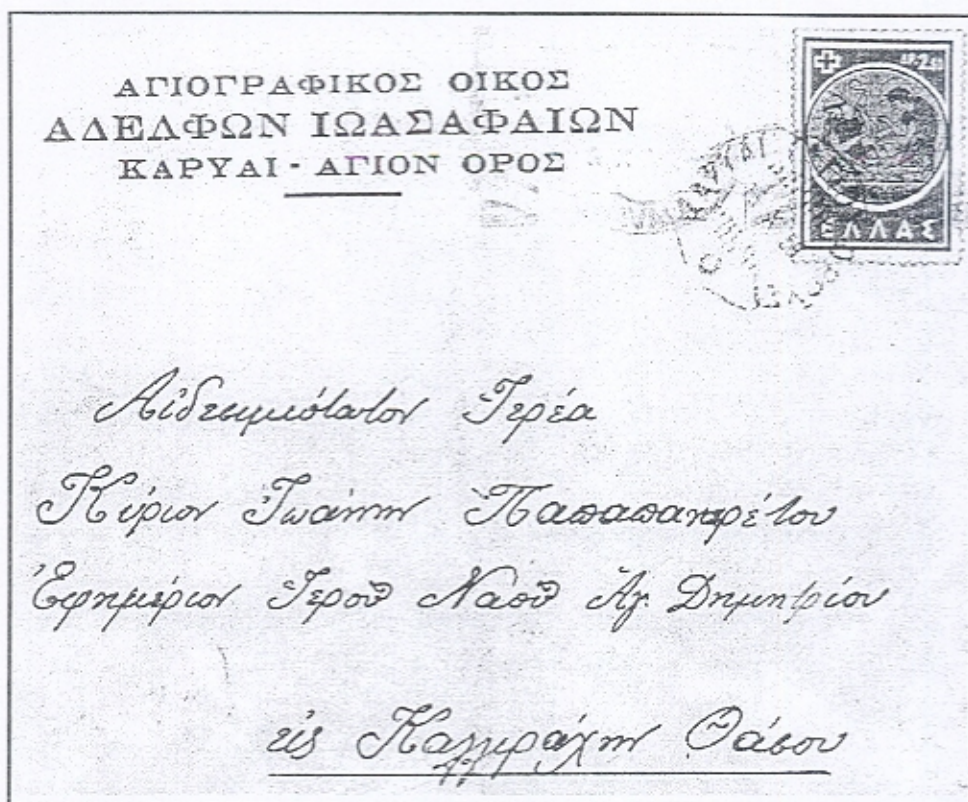 ΑΓΙΟΓΡΑΦΙΚΟΣ ΟΙΚΟΣ
ΑΔΕΛΦΩΝ ΙΩΑΣΑΦΑΙΩΝ
ΚΑΡΥΑΙ - ΑΓΙΟΝ ΟΡΟΣ
ΕΛΛΑΣ
ΚΑΡΥΑΙ
Αἰδεσιμότατον Ἱερέα
Κύριον Ἰωάννην
Ἐφημέριον Ἱεροῦ Ναοῦ Ἁγ. Δημητρίου
εἰς Καλλιράχην Θάσου